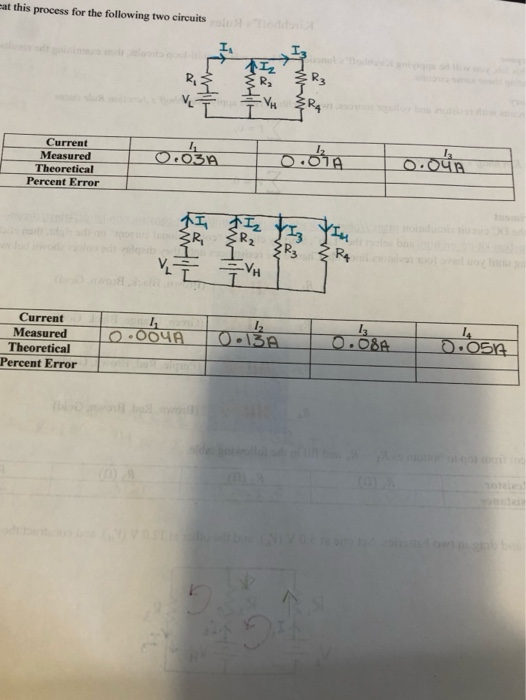 eat this process for the following two circuits
I₁ I₂ I₃
R₁ R₂ R₃
V_L V_H R₄
Current I₁ I₂ I₃
Measured 0.03A 0.07A 0.04A
Theoretical
Percent Error
I₁ I₂ I₃ I₄
R₁ R₂ R₃ R₄
V_L V_H
Current I₁ I₂ I₃ I₄
Measured 0.004A 0.13A 0.08A 0.05A
Theoretical
Percent Error